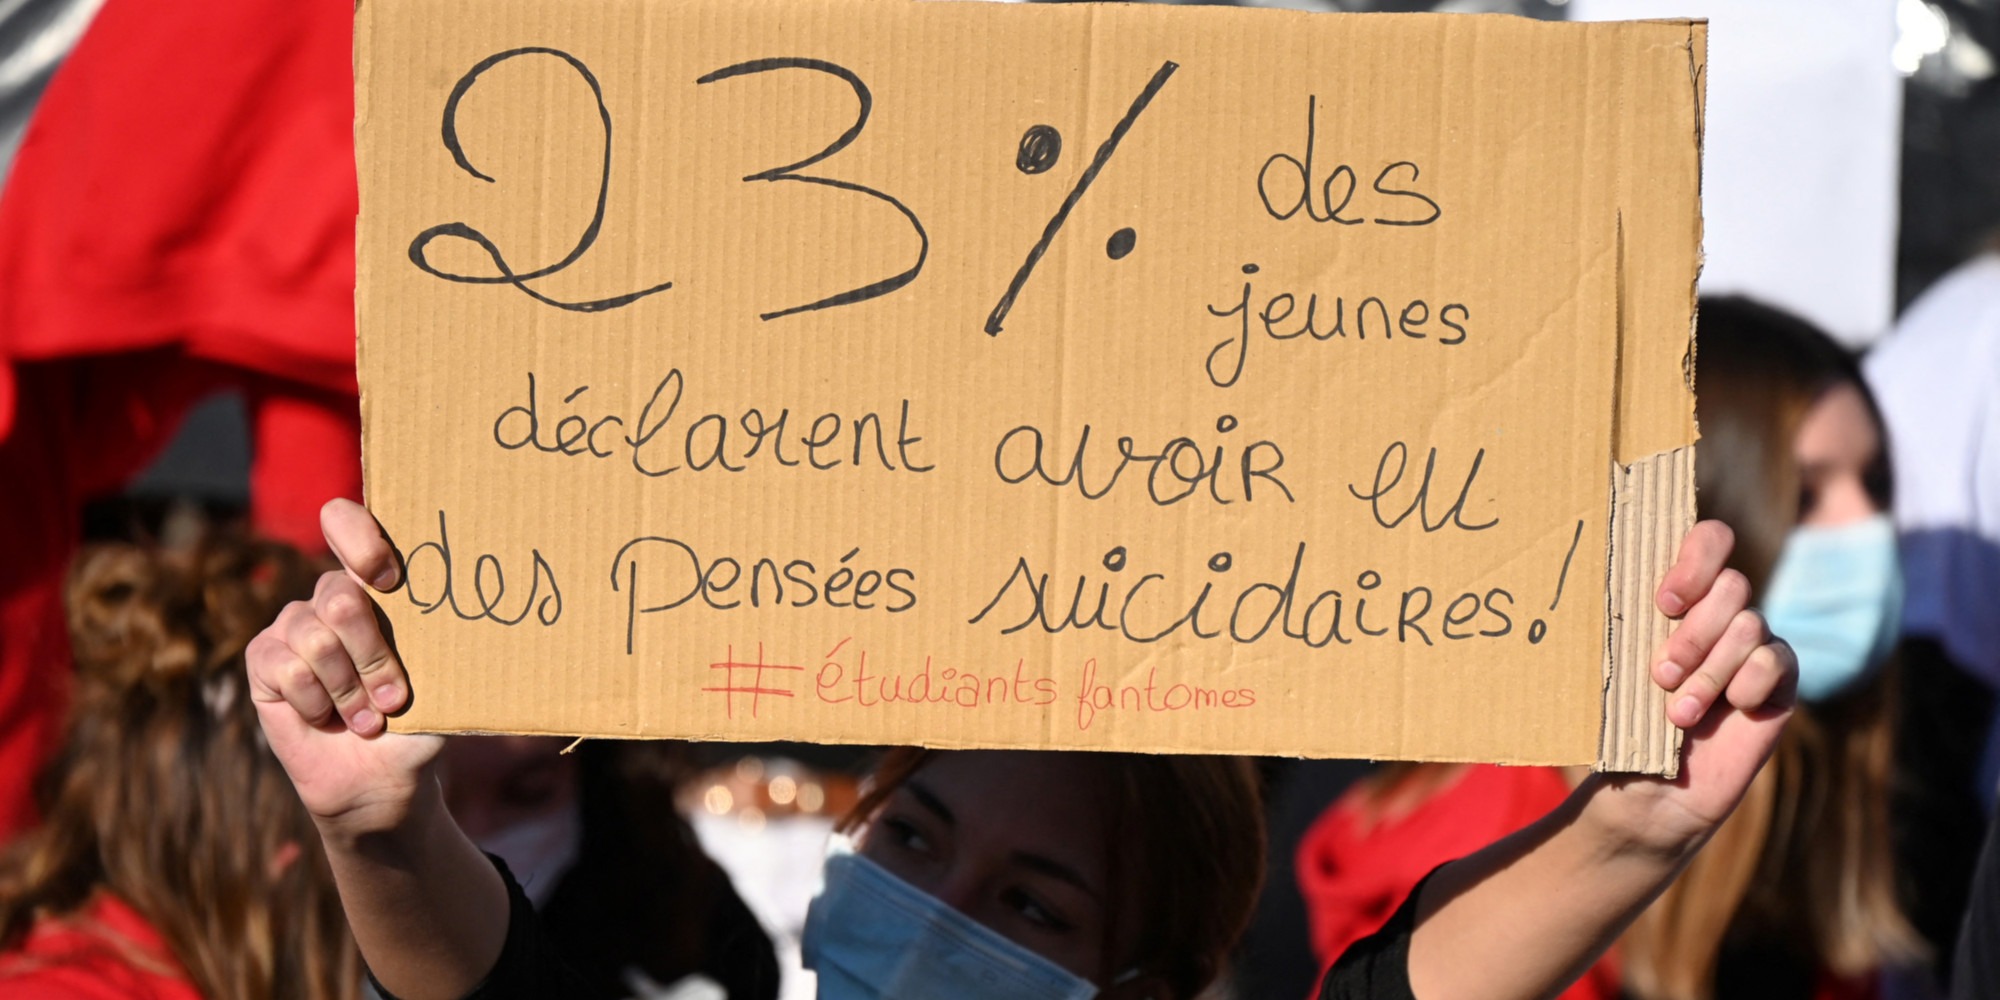 23% des
jeunes
déclarent avoir eu
des pensées suicidaires!
#étudiants fantomes